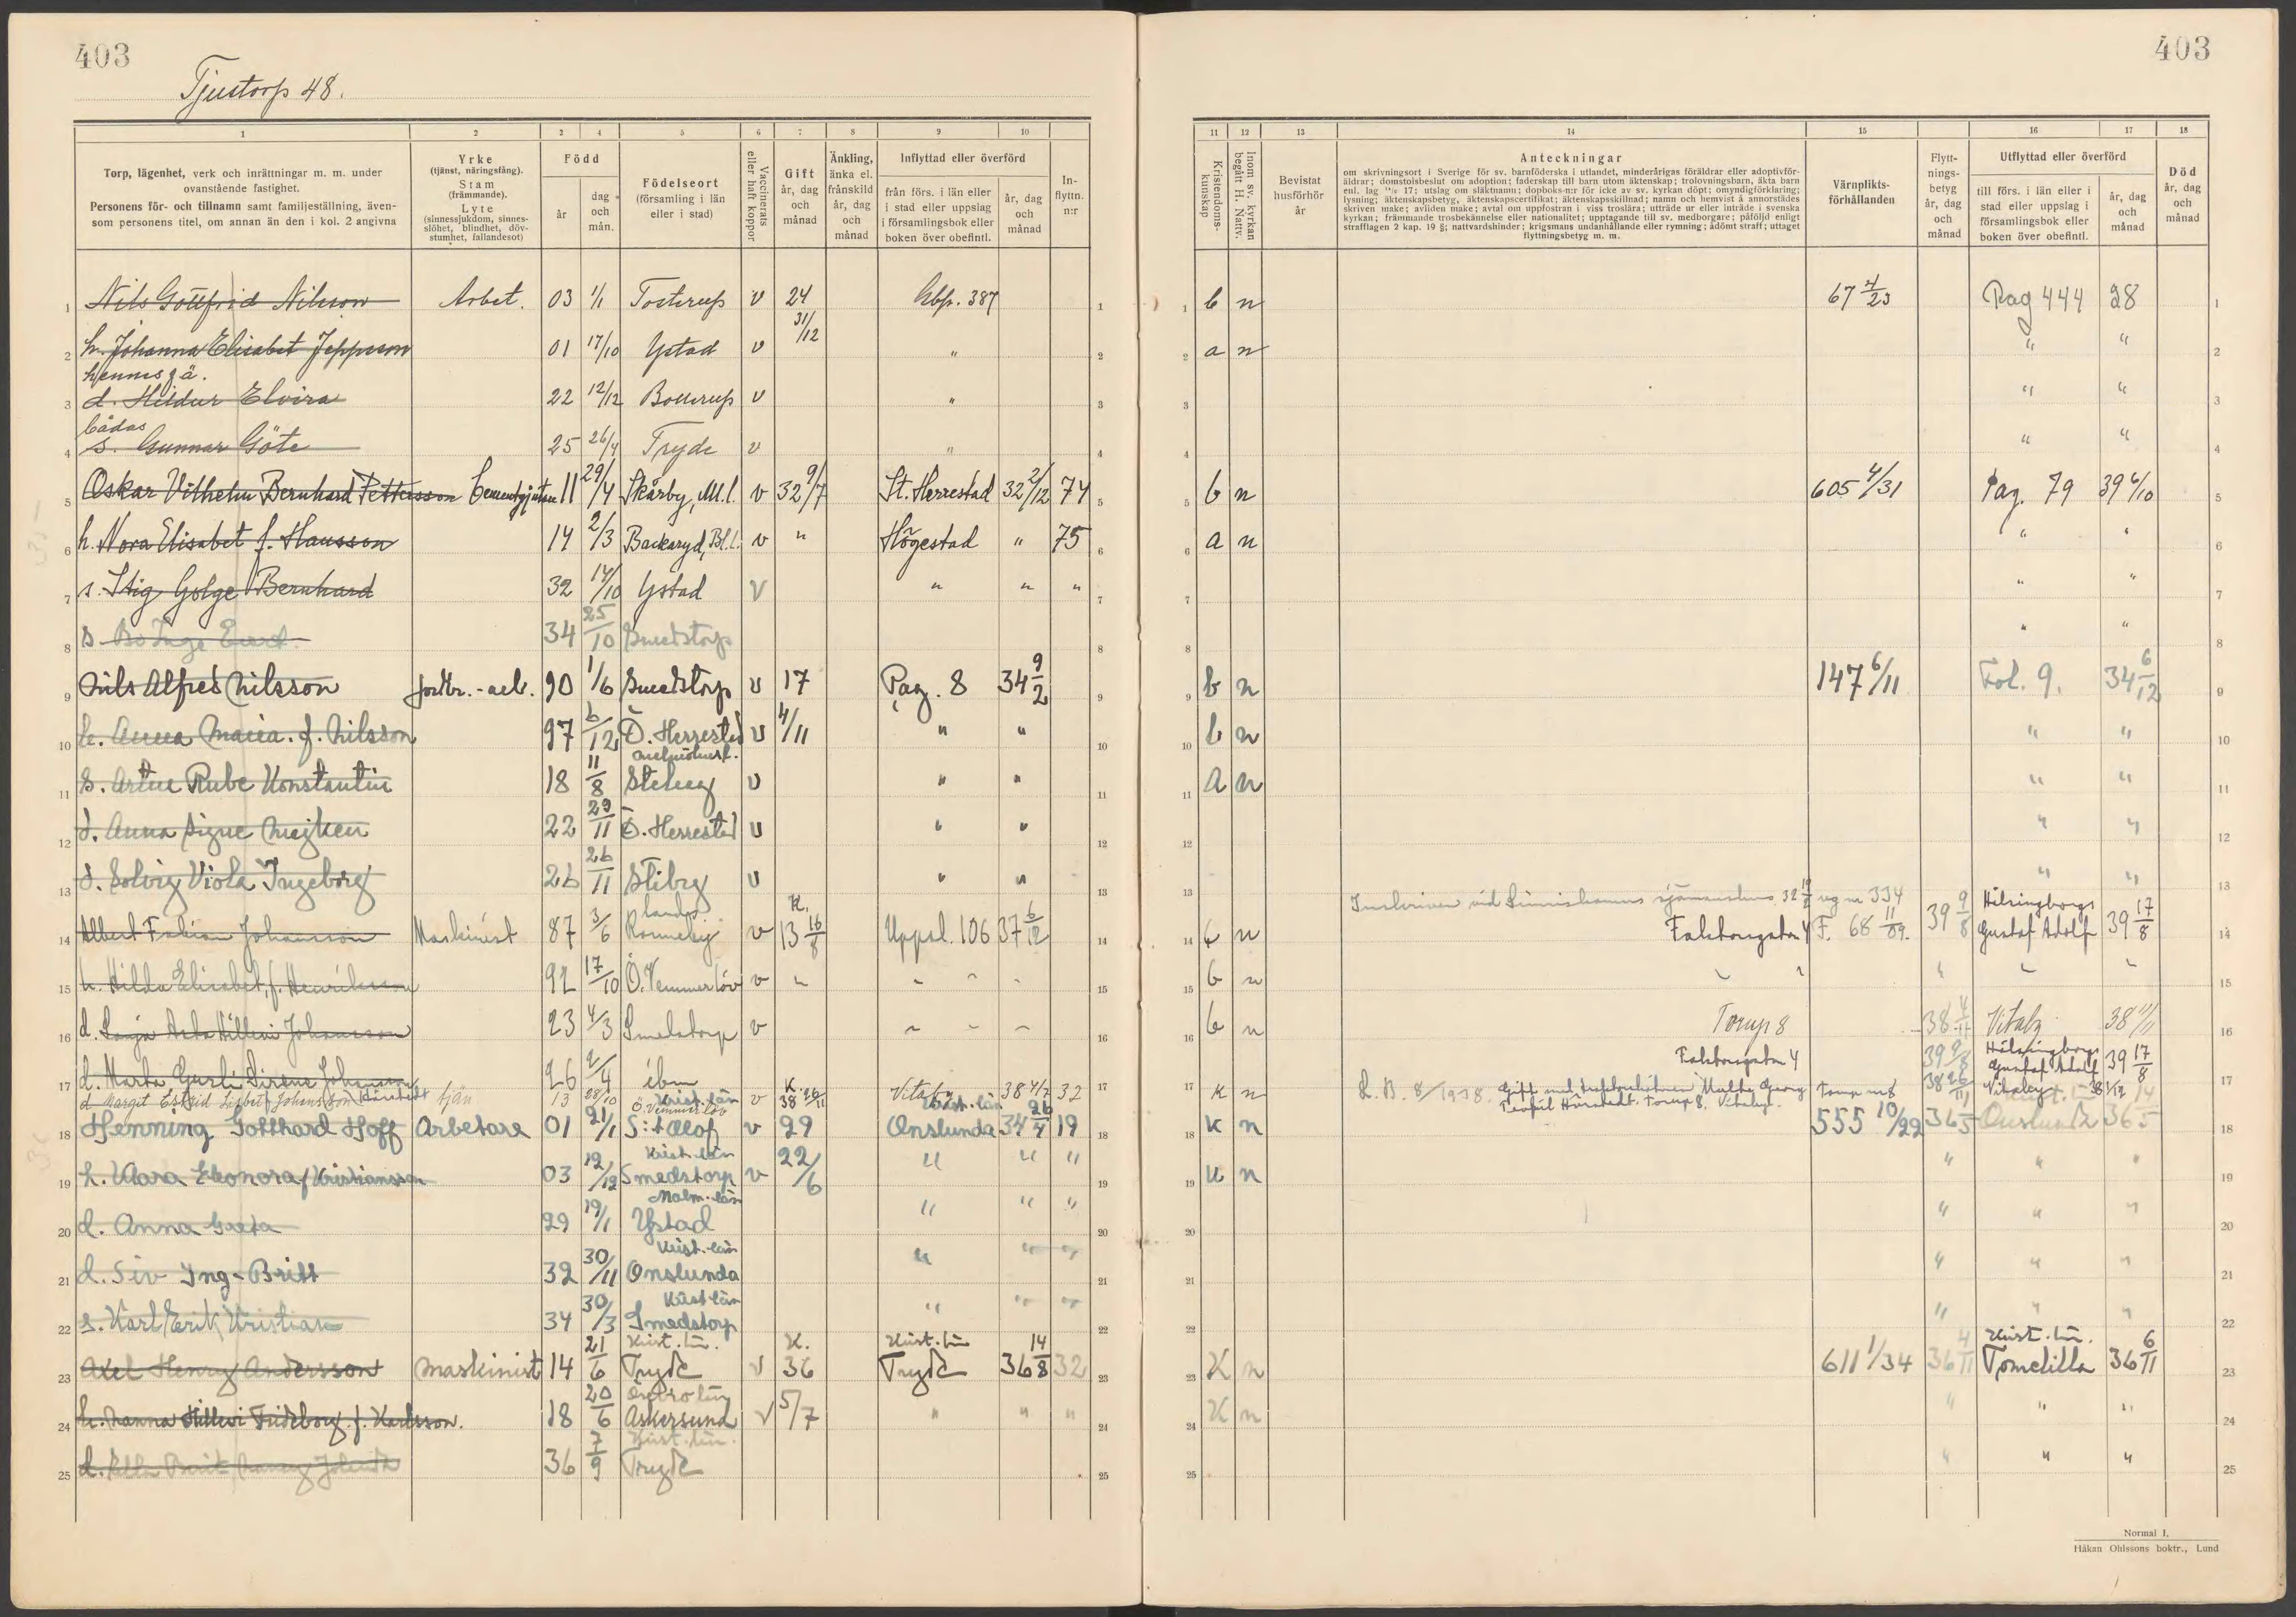 403
403
Tjustorp 48.
1 2 3 4 5 6 7 8 9 10
Torp, lägenhet, verk och inrättningar m. m. under ovanstående fastighet.
Personens för- och tillnamn samt familjeställning, även- som personens titel, om annan än den i kol. 2 angivna
Yrke (tjänst, näringsfång). Stam (främmande). Lyte (sinnessjukdom, sinnes- slöhet, blindhet, döv- stumhet, fallandesot)
Född år dag och mån.
Födelseort (församling i län eller i stad)
Vaccinerats eller haft koppor
Gift år, dag och månad
Änkling, änka el. frånskild år, dag och månad
Inflyttad eller överförd
från förs. i län eller i stad eller uppslag i församlingsbok eller boken över obefintl.
år, dag och månad
In- flyttn. n:r
11 12 13 14 15 16 17 18
Kristendoms- kunskap
Inom sv. kyrkan begått H. Nattv.
Bevistat husförhör år
Anteckningar
om skrivningsort i Sverige för sv. barnföderska i utlandet, minderårigas föräldrar eller adoptivför-
äldrar; domstolsbeslut om adoption; faderskap till barn utom äktenskap; trolovningsbarn, äkta barn
enl. lag 17; utslag om släktnamn; dopboks-n:r för icke av sv. kyrkan döpt; omyndigförklaring;
lysning; äktenskapsbetyg, äktenskapscertifikat; äktenskapsskillnad; namn och hemvist å annorstädes
skriven make; avliden make; avtal om uppfostran i viss troslära; utträde ur eller inträde i svenska
kyrkan; främmande trosbekännelse eller nationalitet; upptagande till sv. medborgare; påföljd enligt
strafflagen 2 kap. 19 §; nattvardshinder; krigsmans undanhållande eller rymning; ådömt straff; uttaget
flyttningsbetyg m. m.
Värnplikts- förhållanden
Flytt- nings- betyg år, dag och månad
Utflyttad eller överförd
till förs. i län eller i stad eller uppslag i församlingsbok eller boken över obefintl.
år, dag och månad
Död år, dag och månad
1 Nils Gottfrid Nilsson Arbet. 03 1/1 Tosterup v 24 31/12 387 1
1 b n 67 4/23 Pag 444 28 1
2 h. Johanna Elisabet Jeppsson 01 17/10 Ystad v " 2
2 a n " " 2
hennes
3 d. Hildur Elvira 22 12/12 Bollerup v " 3
3 " " 3
bådas
4 s. Gunnar Göte 25 26/4 Tryde v " 4
4 " " 4
5 Oskar Vilhelm Bernhard Pettersson Cementgjutare 11 29/4 Skårby, M.l. v 32 9/7 St. Herrestad 32 2/12 74 5
5 b n 605 4/31 Pag. 79 39 6/10 5
6 h. Nora Elisabet f. Hansson 14 2/3 Backaryd, Bl.l. v " Högestad " 75 6
6 a n " " 6
7 s. Stig Golge Bernhard 32 14/10 Ystad v " " " 7
7 " " 7
8 s. Bo Inge Evert 34 25/10 Smedstorp 8
8 " " 8
9 Nils Alfred Nilsson jordbr.-arb. 90 1/6 Smedstorp v 17 4/11 Pag. 8 34 9/2 9
9 b n 147 6/11 Fol. 9. 34 6/12 9
10 h. Anna Maria f. Nilsson 97 6/12 Ö. Herrestad v " " 10
10 b n " " 10
11 s. Artur Rube Konstantin 18 11/8 Stiby v " " 11
11 a n " " 11
12 d. Anna Signe Majken 22 29/11 Ö. Herrestad v " " 12
12 " " 12
13 d. Solvig Viola Ingeborg 26 26/11 Stiby v " " 13
13 " " 13
Inskriven vid Simrishamns sjömanshus 32 reg nr 334
14 Albert Fabian Johansson Maskinist 87 3/6 Ronneby v K. 13 16/8 Uppsl. 106 37 6/12 14
14 b n Falskongatan 4 F. 68 11/09. 39 9/8 Hälsingborgs Gustaf Adolf 39 17/8 14
15 h. Hilda Elisabet, f. Henriksson 92 17/10 Ö. Vemmerlöv v " " " 15
15 b n " " " 15
16 d. Sonja Asta Hillevi Johansson 23 4/3 Smedstorp v " " 16
16 b n Torup 8 38 4/11 Vitaby 38 11/11 16
17 d. Marta Gurli Sirene Johansson 26 2/4 ibm 17
Falskongatan 4 39 9/8 Hälsingborgs Gustaf Adolf 39 17/8 17
d Margit Estrid Lisbet Johansson Hårstedt tjän 13 28/10 Krist. län Ö. Vemmerlöv v K 38 26/11 Vitaby 38 4/7 32
17 k n L. B. 8/1938. Gift med Malte Georg Teofil Hårstedt. Torup 8. Vitaby. Torup nr 8 38 26/11 Vitaby 38 1/12
18 Henning Gotthard Hoff Arbetare 01 21/1 S:t Olof v 29 22/6 Krist. län Onslunda 34 26/4 19 18
18 k n 555 10/22 36 Onslunda 36 14/5 18
19 h. Klara Eleonora f. Kristiansson 03 12/12 Krist. län Smedstorp v " " " 19
19 k n " " " 19
20 d. Anna Greta 29 19/1 Malm. län Ystad " " " 20
20 " " " 20
21 d. Siv Ing-Britt 32 30/11 Krist. län Onslunda " " " 21
21 " " " 21
22 s. Karl Erik Kristian 34 30/3 Krist län Smedstorp " " " 22
22 " " " 22
23 Axel Henry Andersson maskinist 14 21/6 Krist. län. Tryde v K. 36 5/7 Krist. län Tryde 36 14/8 32 23
23 K n 611 1/34 36 4/11 Krist. län. Tomelilla 36 6/11 23
24 h. Nanna Hillevi Frideborg f. Karlsson. 18 20/6 Örebro län Askersund v " " " 24
24 K n " " " 24
25 d. Britt 36 7/9 Krist. län. Tryde 25
25 " " " 25
Normal I.
Håkan Ohlssons boktr., Lund